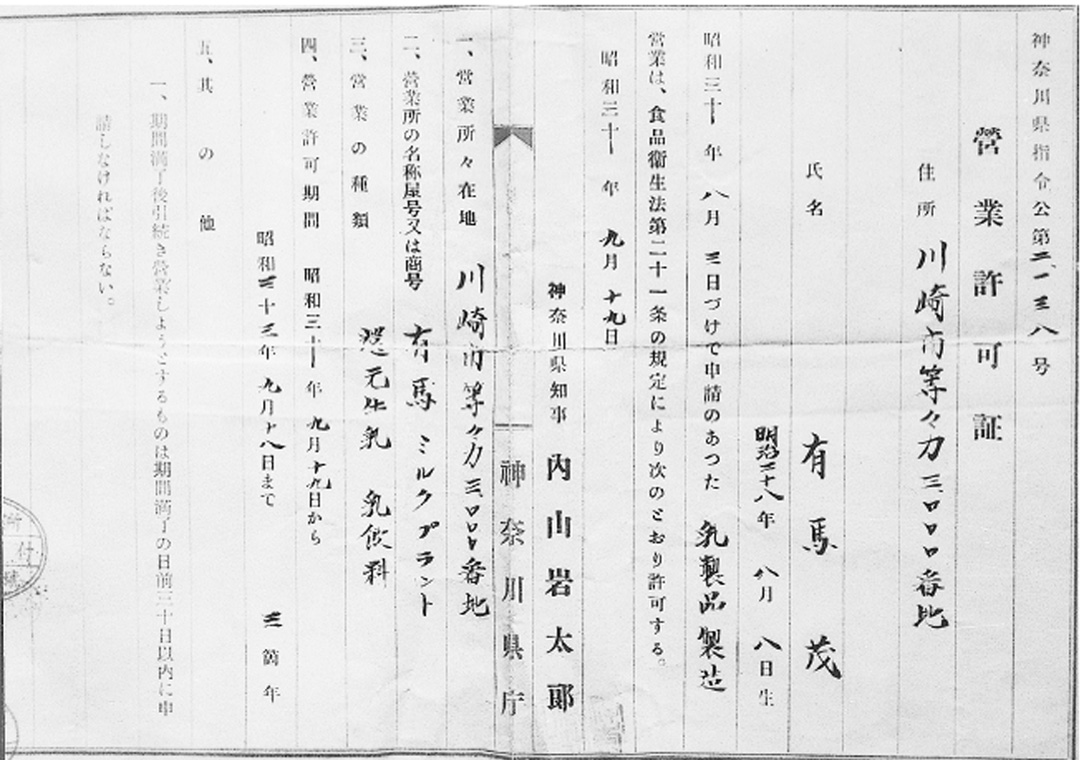 神奈川県指令公第二一三八号
營業許可証
住所 川崎市等々力三〇〇〇番地
氏名 有馬茂
明治三十八年 八月 八日生
昭和三十年 八月 三日づけで申請のあつた 乳製品製造
営業は、食品衛生法第二十一条の規定により次のとおり許可する。
昭和三十年 九月 十九日
神奈川県知事 内山岩太郎
神奈川県庁
一、営業所々在地 川崎市等々力三〇〇〇番地
二、營業所の名称屋号又は商号 有馬ミルクプラント
三、営業の種類 還元牛乳 乳飲料
四、營業許可期間 昭和三十年 九月十九日から
昭和三十三年 九月十八日まで 三箇年
五、其の他
一、期間満了後引続き営業しようとするものは期間満了の日前三十日以内に申
請しなければならない。
付